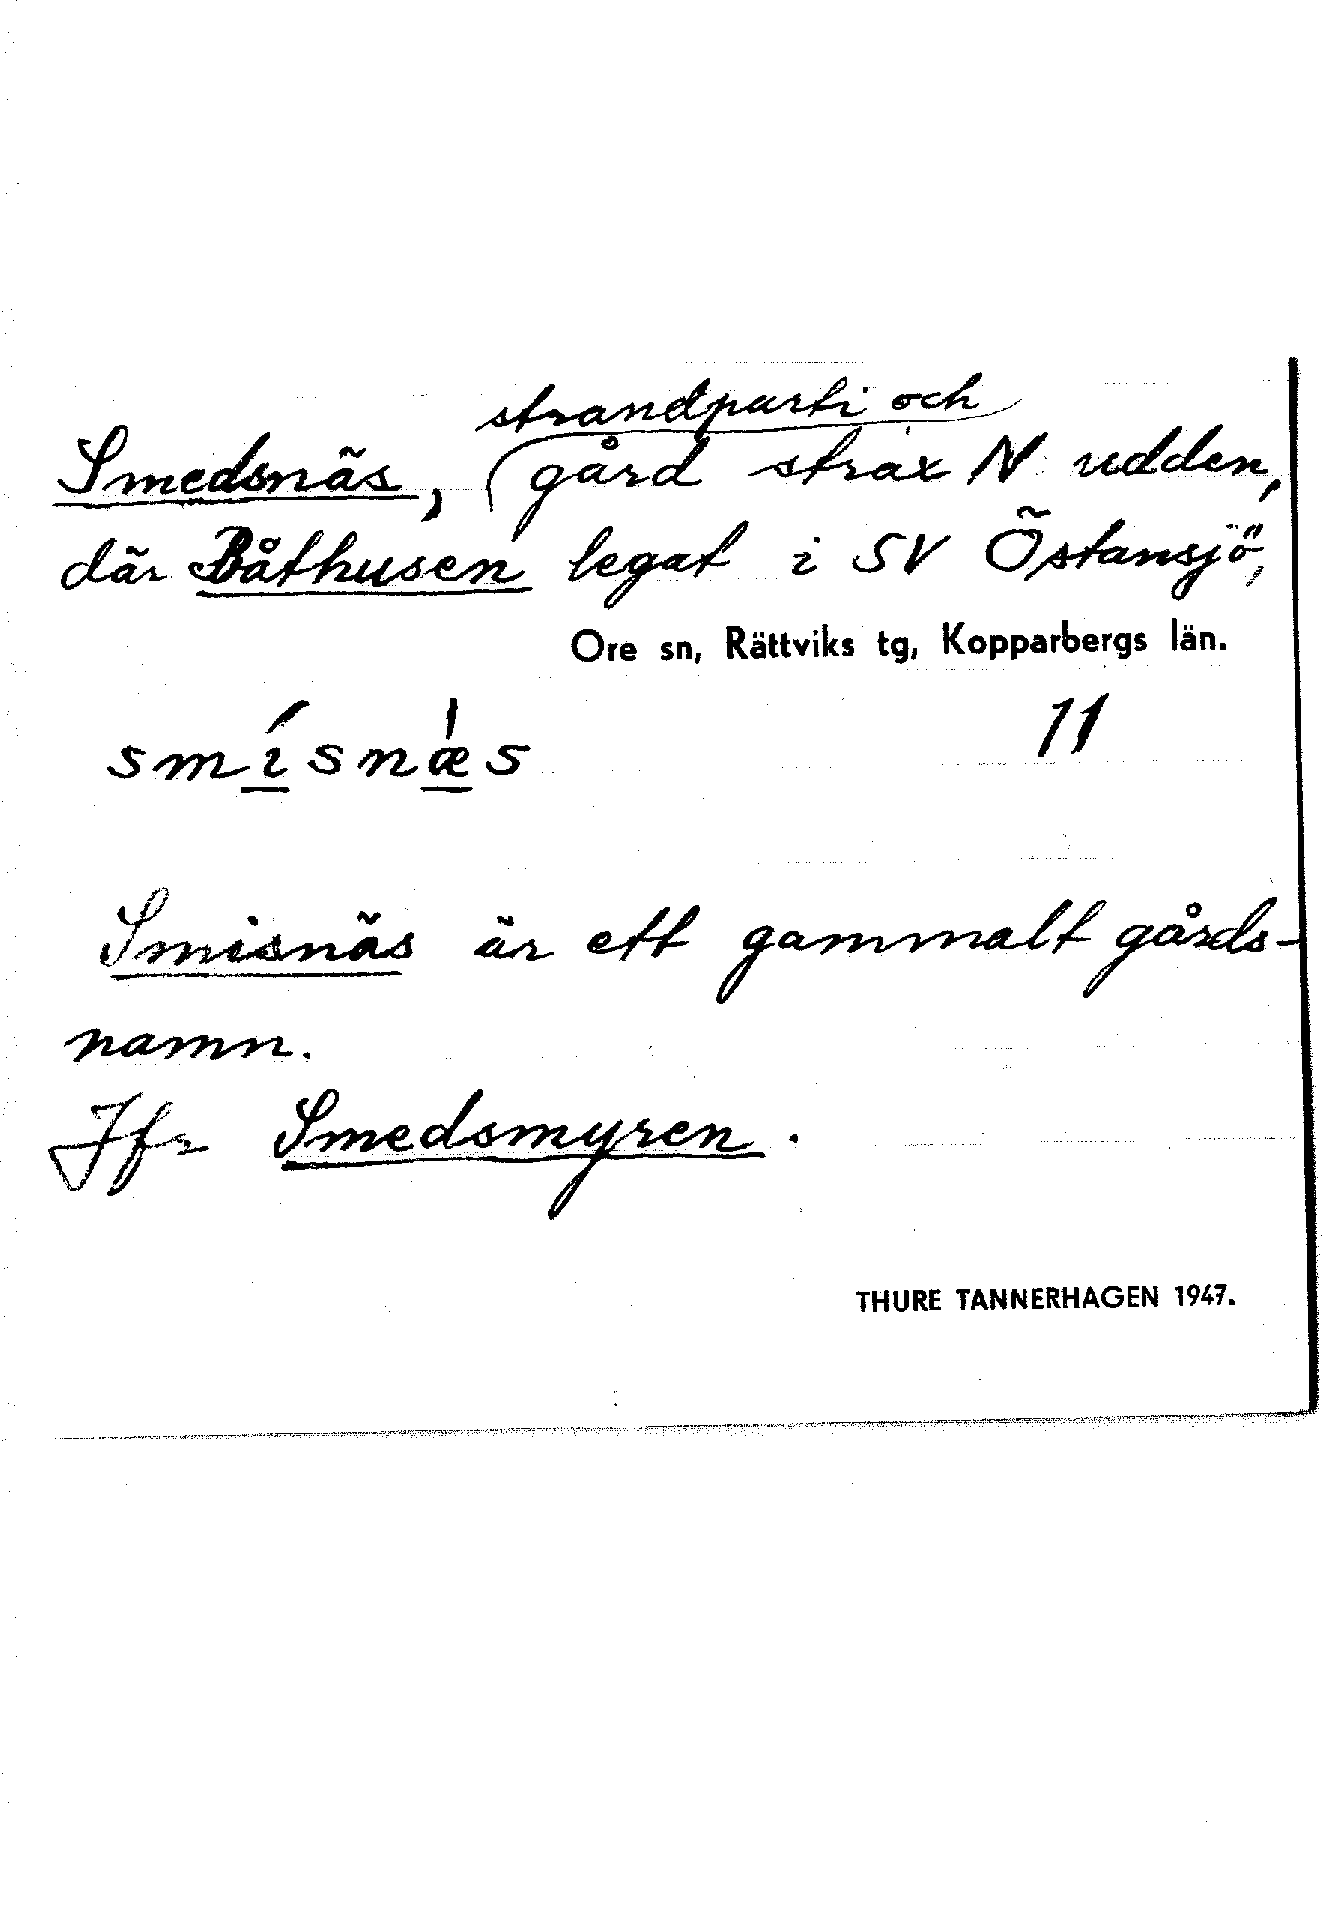 strandparti och
Smedsnäs, gård strax N udden,
där Båthusen legat i SV Östansjö,
Ore sn, Rättviks tg, Kopparbergs län.
smísnæ̍s 11
Smisnäs är ett gammalt gårds-
namn.
Jfr Smedsmyren.
THURE TANNERHAGEN 1947.